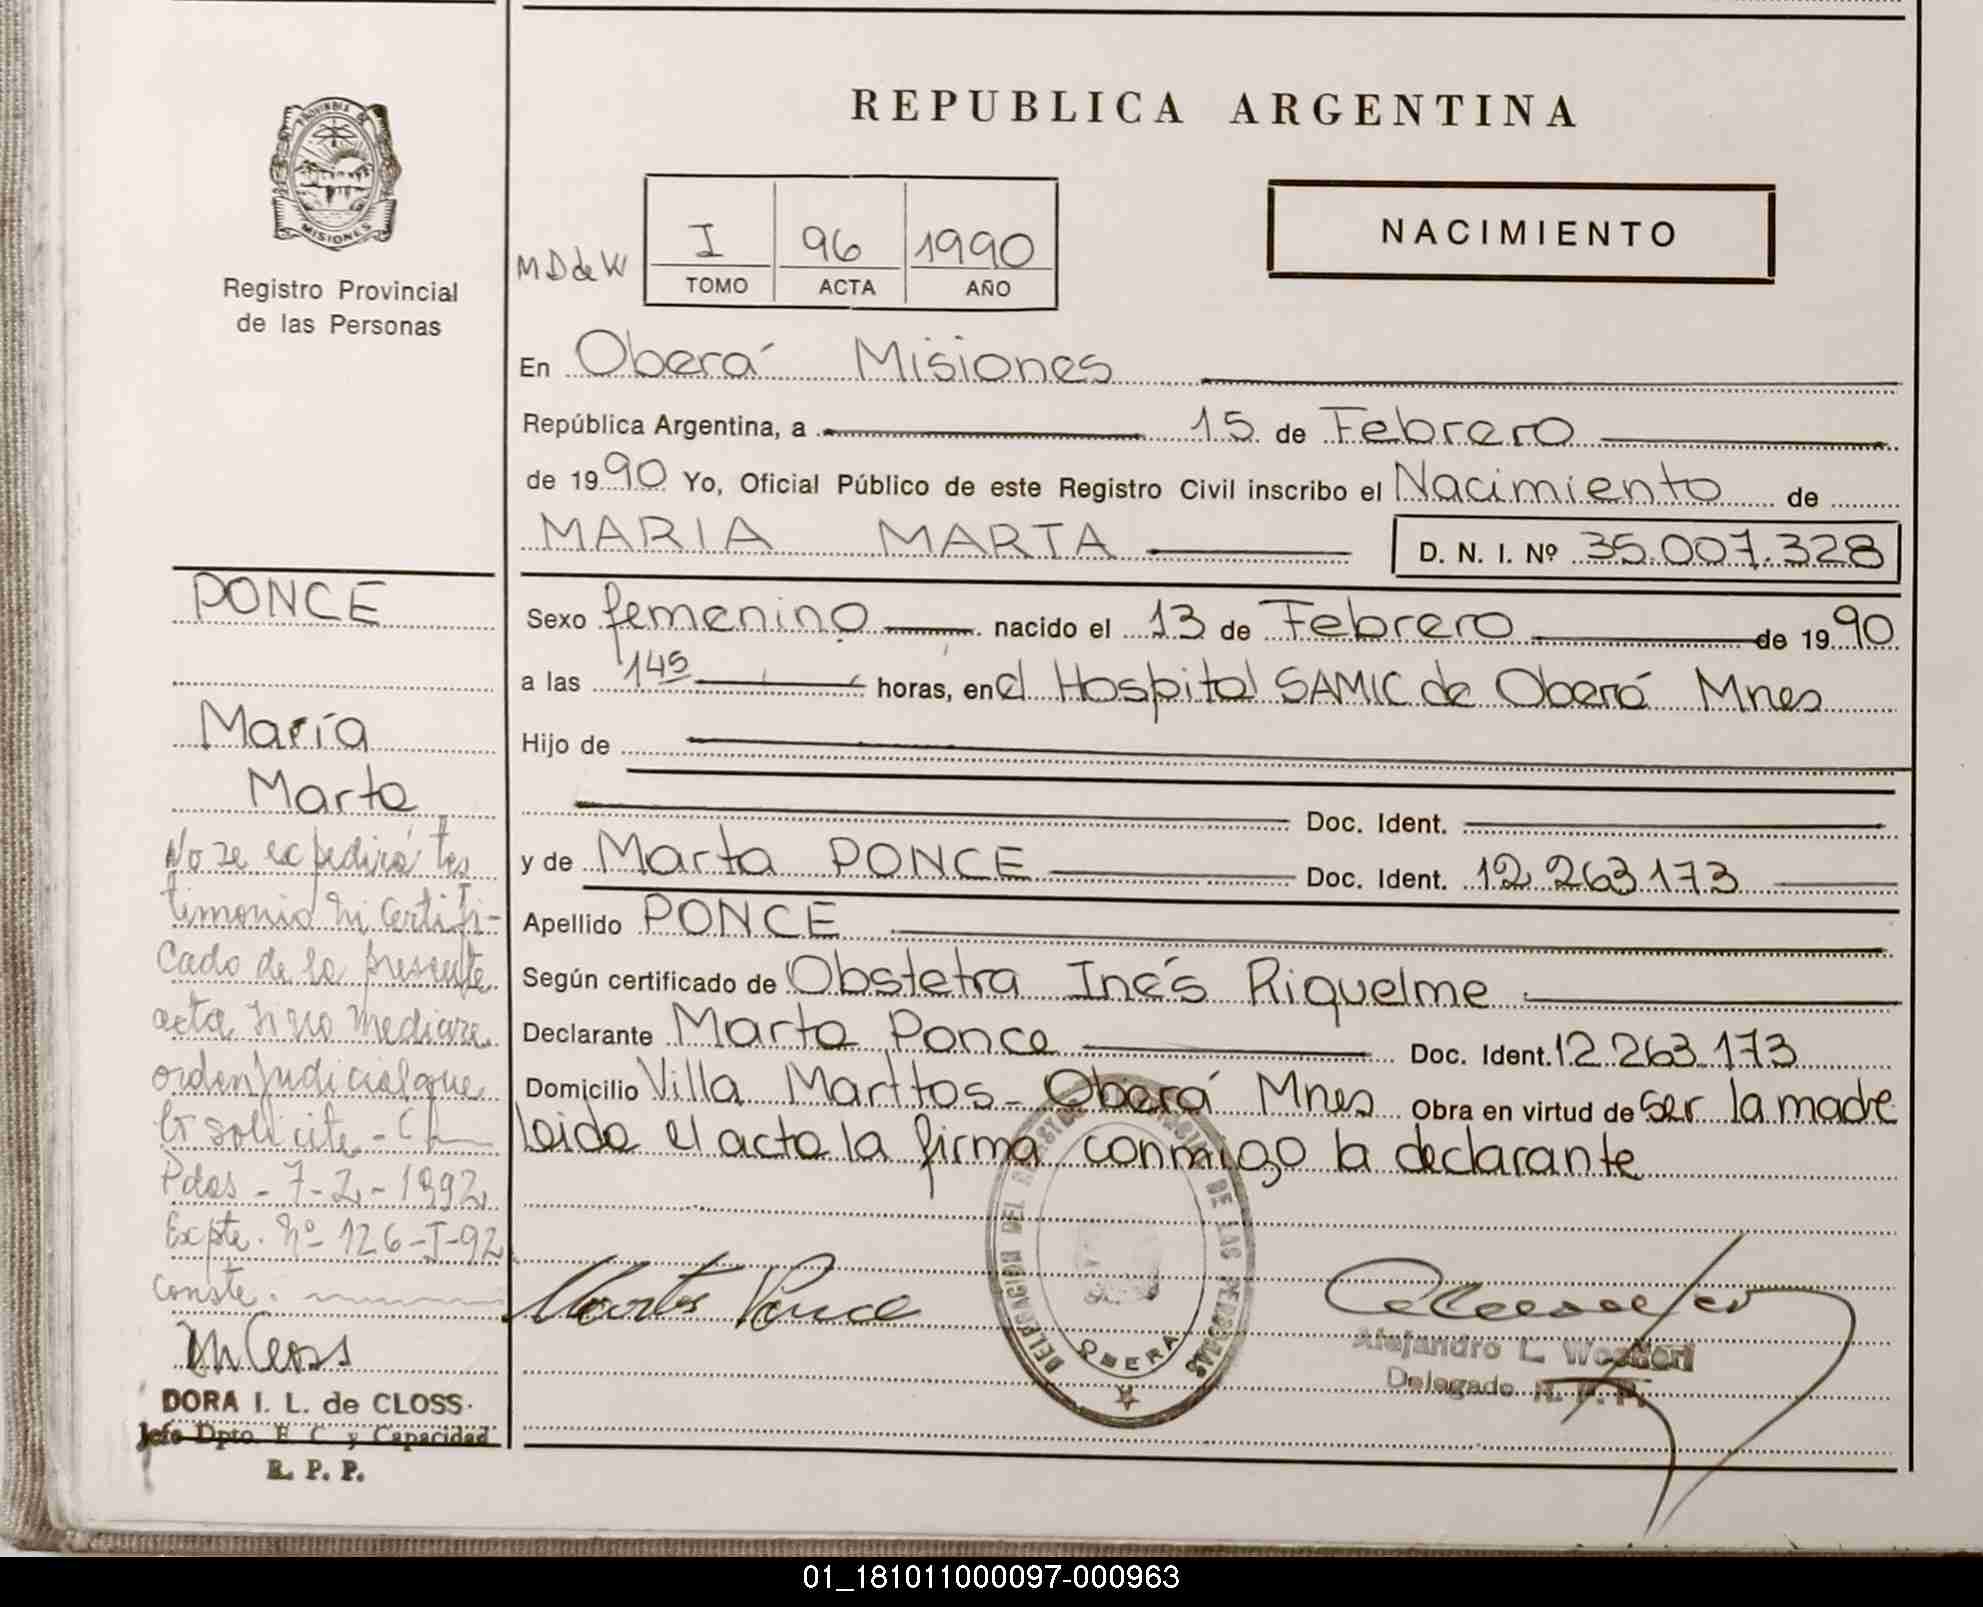 REPUBLICA ARGENTINA
PROVINCIA DE
MISIONES
Registro Provincial
de las Personas
MD de W
I 96 1990
TOMO ACTA AÑO
NACIMIENTO
En Oberá Misiones
República Argentina, a 15 de Febrero
de 1990 Yo, Oficial Público de este Registro Civil inscribo el Nacimiento de
MARIA MARTA D. N. I. Nº 35.007.328
Sexo femenino nacido el 13 de Febrero de 1990
a las 145 horas, en el Hospital SAMIC de Oberá Mnes
Hijo de
Doc. Ident.
y de Marta PONCE Doc. Ident. 12 263 173
Apellido PONCE
Según certificado de Obstetra Inés Riquelme
Declarante Marta Ponce Doc. Ident. 12 263 173
Domicilio Villa Marttos - Oberá Mnes Obra en virtud de ser la madre
leida el acta la firma conmigo la declarante
Marta Ponce
DELEGACION DEL REGISTRO PROVINCIAL DE LAS PERSONAS
OBERA
Alejandro L.
Delegado R. P. P.
PONCE
María
Marta
No se expedirá tes
timonio ni certifi-
cado de la presente
acta si no mediare
orden judicial que
lo solicite -
Pdas - 7-2-1992
Expte. Nº 126-I-92
conste.
DORA I. L. de CLOSS
Jefe Dpto. E. C. y Capacidad
R. P. P.
01_181011000097-000963